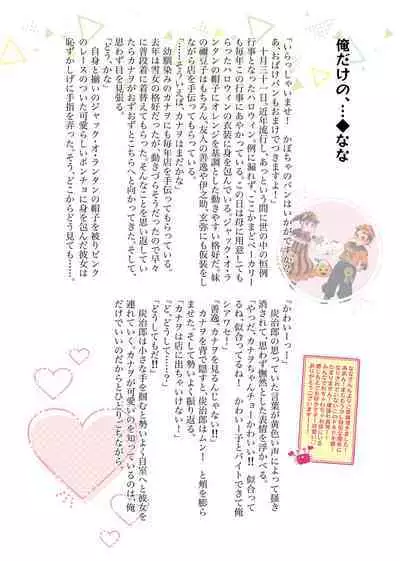 俺だけの、…◆なな
「いらっしゃいませ！　かぼちゃのパンはいかがですか？
あ、おばけパンもおまけでつきますよ！」
十月三十一日。近年流行し、あっという間に世の中の恒例
行事となったハロウィン。例に漏れず、ここかまどベーカリー
も毎年この行事にあやかっている。この日は母に用意しても
らったハロウィンの衣装に身を包んでいる。ジャック・オ・ラ
ンタンの帽子にオレンジを基調とした動きやすい格好だ。妹
の禰豆子はもちろん、友人の善逸や伊之助、玄弥にも仮装をし
ながら店を手伝ってもらっている。
「……そういえば、カナヲはまだかな」
幼馴染みのカナヲにも毎年店を手伝ってもらっている。
去年は雪女の格好だったが、動きづらそうだったので早々
に普段着に着替えてもらった。そんなことを思い返してい
たらカナヲがおずおずとこちらへと向かってきた。そして、
思わず目を見張る。
「どう、かな」
自身と揃いのジャック・オ・ランタンの帽子を被りピンク
のレースのついた可愛らしいポンチョに身を包んだ彼女は
恥ずかしげに手指を弄った。そう、どこからどう見ても……。
『かわいーっ！』
炭治郎の思っていた言葉が黄色い声によって掻き
消されて、思わず憮然とした表情を浮かべる。
「やっだ、カナヲちゃんチョーかわいい!!　似合って
るね、似合ってるね！　かわいー子とバイトできて俺
シアワセー！」
「善逸、カナヲを見るんじゃない!!」
カナヲを背で隠すと、炭治郎はムン！　と頬を膨ら
ませた。そして勢いよく振り返る。
「カナヲは店に出ちゃいけない！」
「ど、どうして……？」
「どうしても!!」
炭治郎は小さな手を掴むと勢いよく自室へと彼女を
連れていく。カナヲが可愛いのを知っているのは、俺
だけでいいのだからとひとりごちながら。